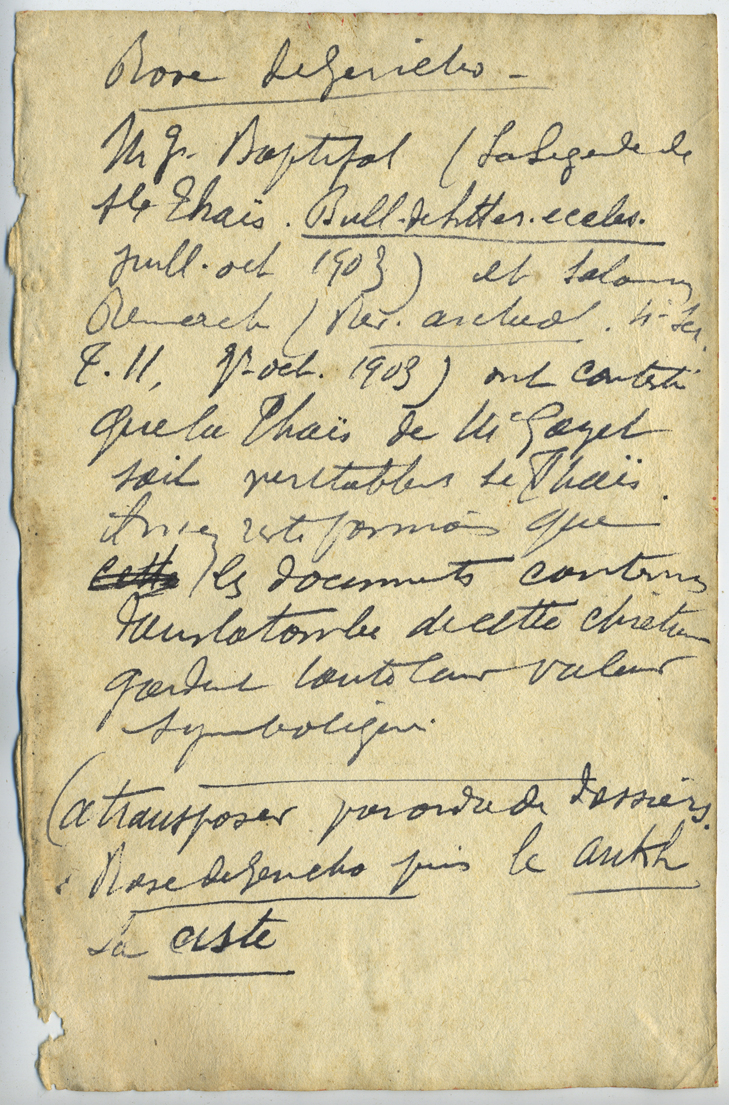 Rose de Jericho –
Mgr Baptifol (La Legende de
Ste Thaïs. Bull. de litter. eccles.
juill. oct 1903) et Salomon
Reinach (Rev. archeol. 4e Ser.
T. II, 7r-oct. 1903) ont contesté
que la Thaïs de Mr Gayet
soit veritablemt Ste Thaïs.
reste formais que
cette les documents contenus
dans la tombe de cette chrétienne
gardent toute leur valeur
symbolique.
(a transposer par ordre de dossiers.
Rose de Jericho puis le ankh
La ciste